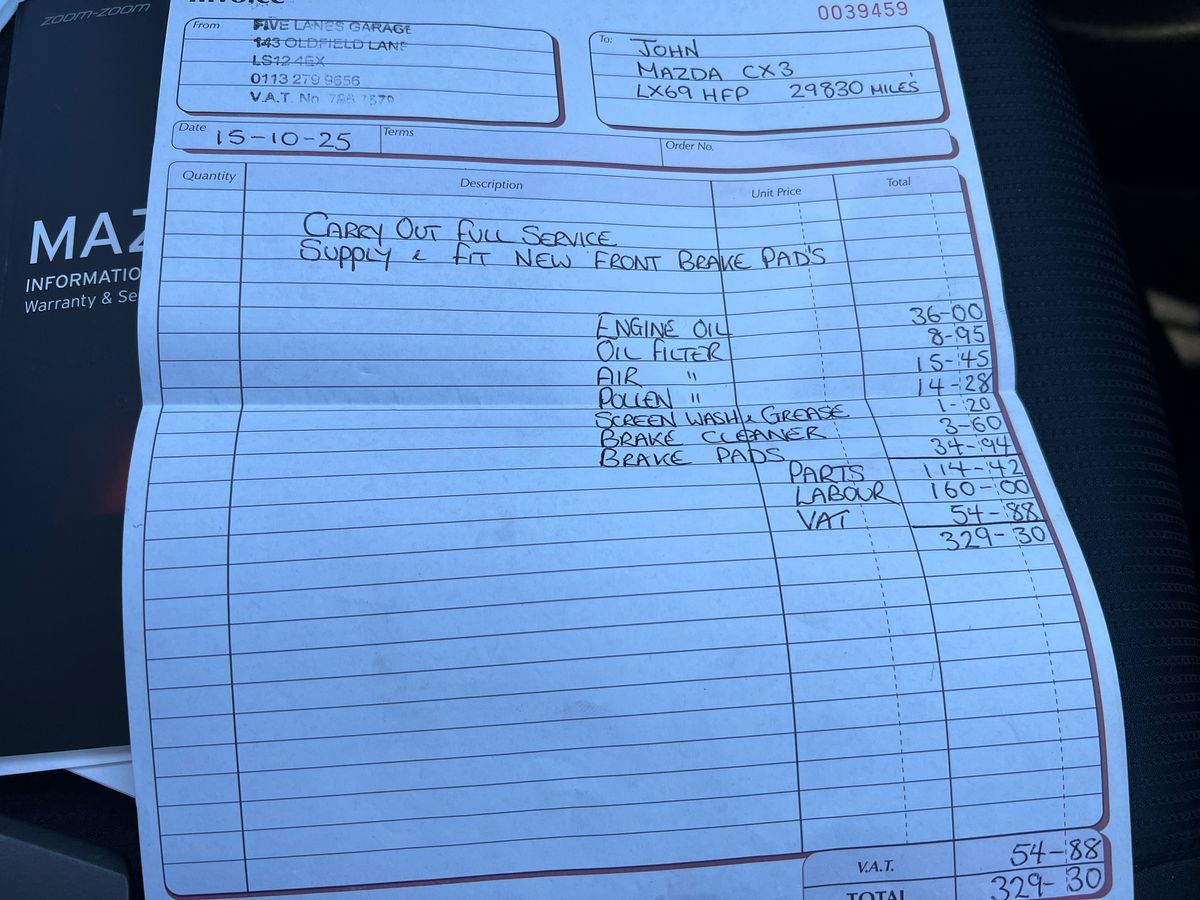 zoom-zoom
Invoice
0039459
From
FIVE LANES GARAGE
143 OLDFIELD LANE
LS12 4EX
0113 279 9656
V.A.T. No
To:
JOHN
MAZDA CX3
LX69 HFP 29830 MILES
Date 15-10-25 Terms Order No.
Quantity Description Unit Price Total
CARRY OUT FULL SERVICE
SUPPLY & FIT NEW FRONT BRAKE PAD'S
ENGINE OIL 36-00
OIL FILTER 8-95
AIR " 15-45
POLLEN " 14-28
SCREEN WASH & GREASE 1-20
BRAKE CLEANER 3-60
BRAKE PADS 34-94
PARTS 114-42
LABOUR 160-00
VAT 54-88
329-30
V.A.T. 54-88
TOTAL 329-30
MAZ
INFORMATIO
Warranty & Se